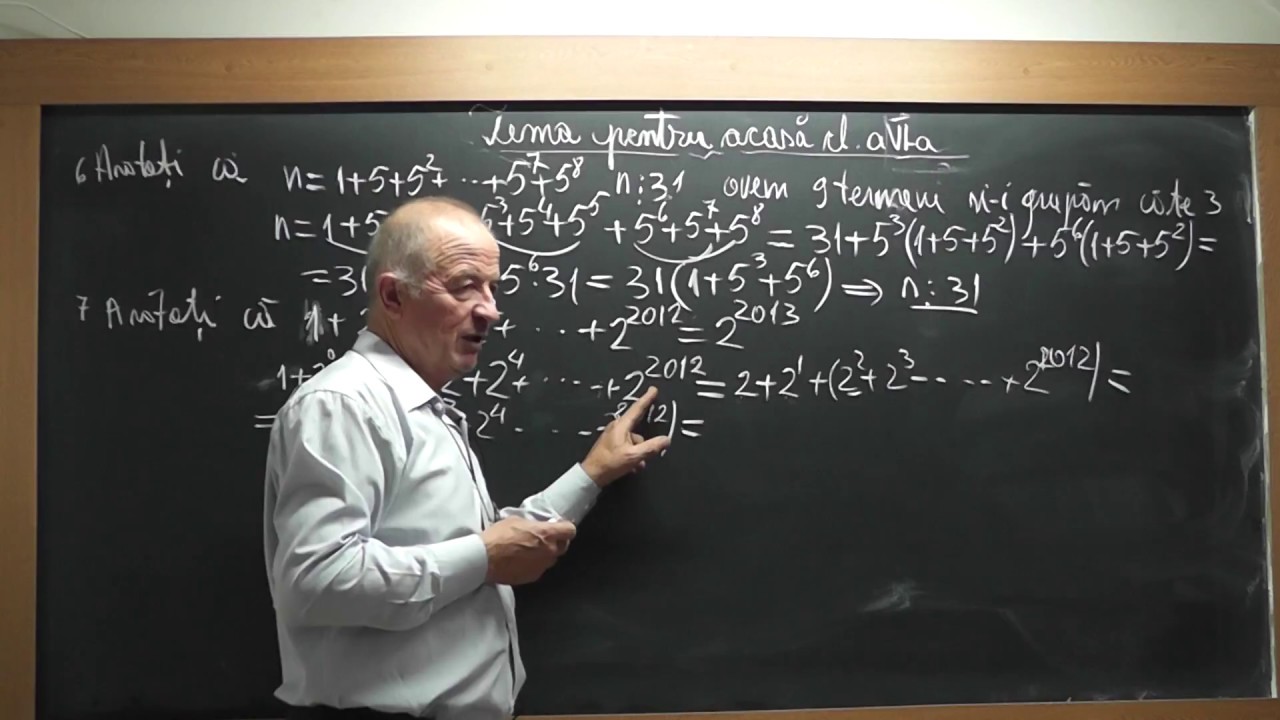 Tema pentru acasă cl. a VI-a
6 Arătați că n = 1+5+5²+ ··· +5⁷+5⁸ n⋮31 avem 9 termeni și-i grupăm câte 3
n = 1+5 5³+5⁴+5⁵ +5⁶+5⁷+5⁸ = 31+5³(1+5+5²)+5⁶(1+5+5²)=
=31 5⁶·31 = 31(1+5³+5⁶) ⇒ n⋮31
7 Arătați că 1+ + ··· +2²⁰¹² = 2²⁰¹³
1+2⁰ 2 +2⁴+ ···· +2²⁰¹² = 2+2¹+(2²+2³ ···· +2²⁰¹²)=
= 2⁴ ···· )=